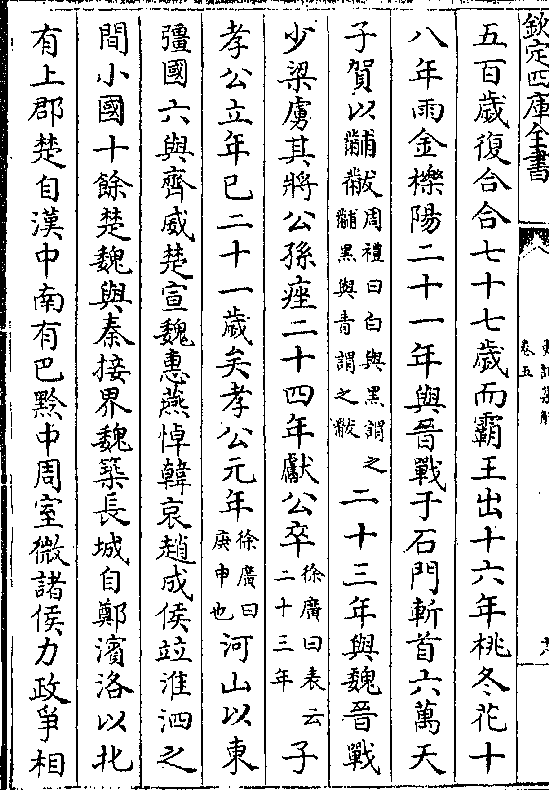 欽定四庫全書
卷五
五百歲復合合七十七歲而霸王出十六年桃冬花十
八年雨金櫟陽二十一年與晉戰于石門斬首六萬天
子賀以黼黻周禮曰白與黑謂之黼黑與青謂之黻二十三年與魏晉戰
少梁虜其將公孫痤二十四年獻公卒徐廣曰表云二十三年子
孝公立年已二十一歲矣孝公元年徐廣曰庚申也河山以東
彊國六與齊威楚宣魏惠燕悼韓哀趙成侯竝淮泗之
間小國十餘楚魏與秦接界魏築長城自鄭濱洛以北
有上郡楚自漢中南有巴黔中周室微諸侯力政爭相